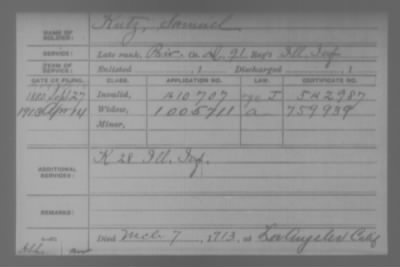 NAME OF SOLDIER: Kutz, Samuel
SERVICE: Late rank, Priv. Co. D, 91 Reg't Ill. Inf.
TERM OF SERVICE: Enlisted , 1 Discharged , 1
DATE OF FILING. CLASS. APPLICATION NO. LAW. CERTIFICATE NO.
Sept 27 Invalid, 810707 J 542987
1913 Apr 14 Widow, 1005711 a 759939
Minor,
ADDITIONAL SERVICES: K 28 Ill. Inf.
REMARKS:
Died Mch 7, 1913, at Los Angeles Calif